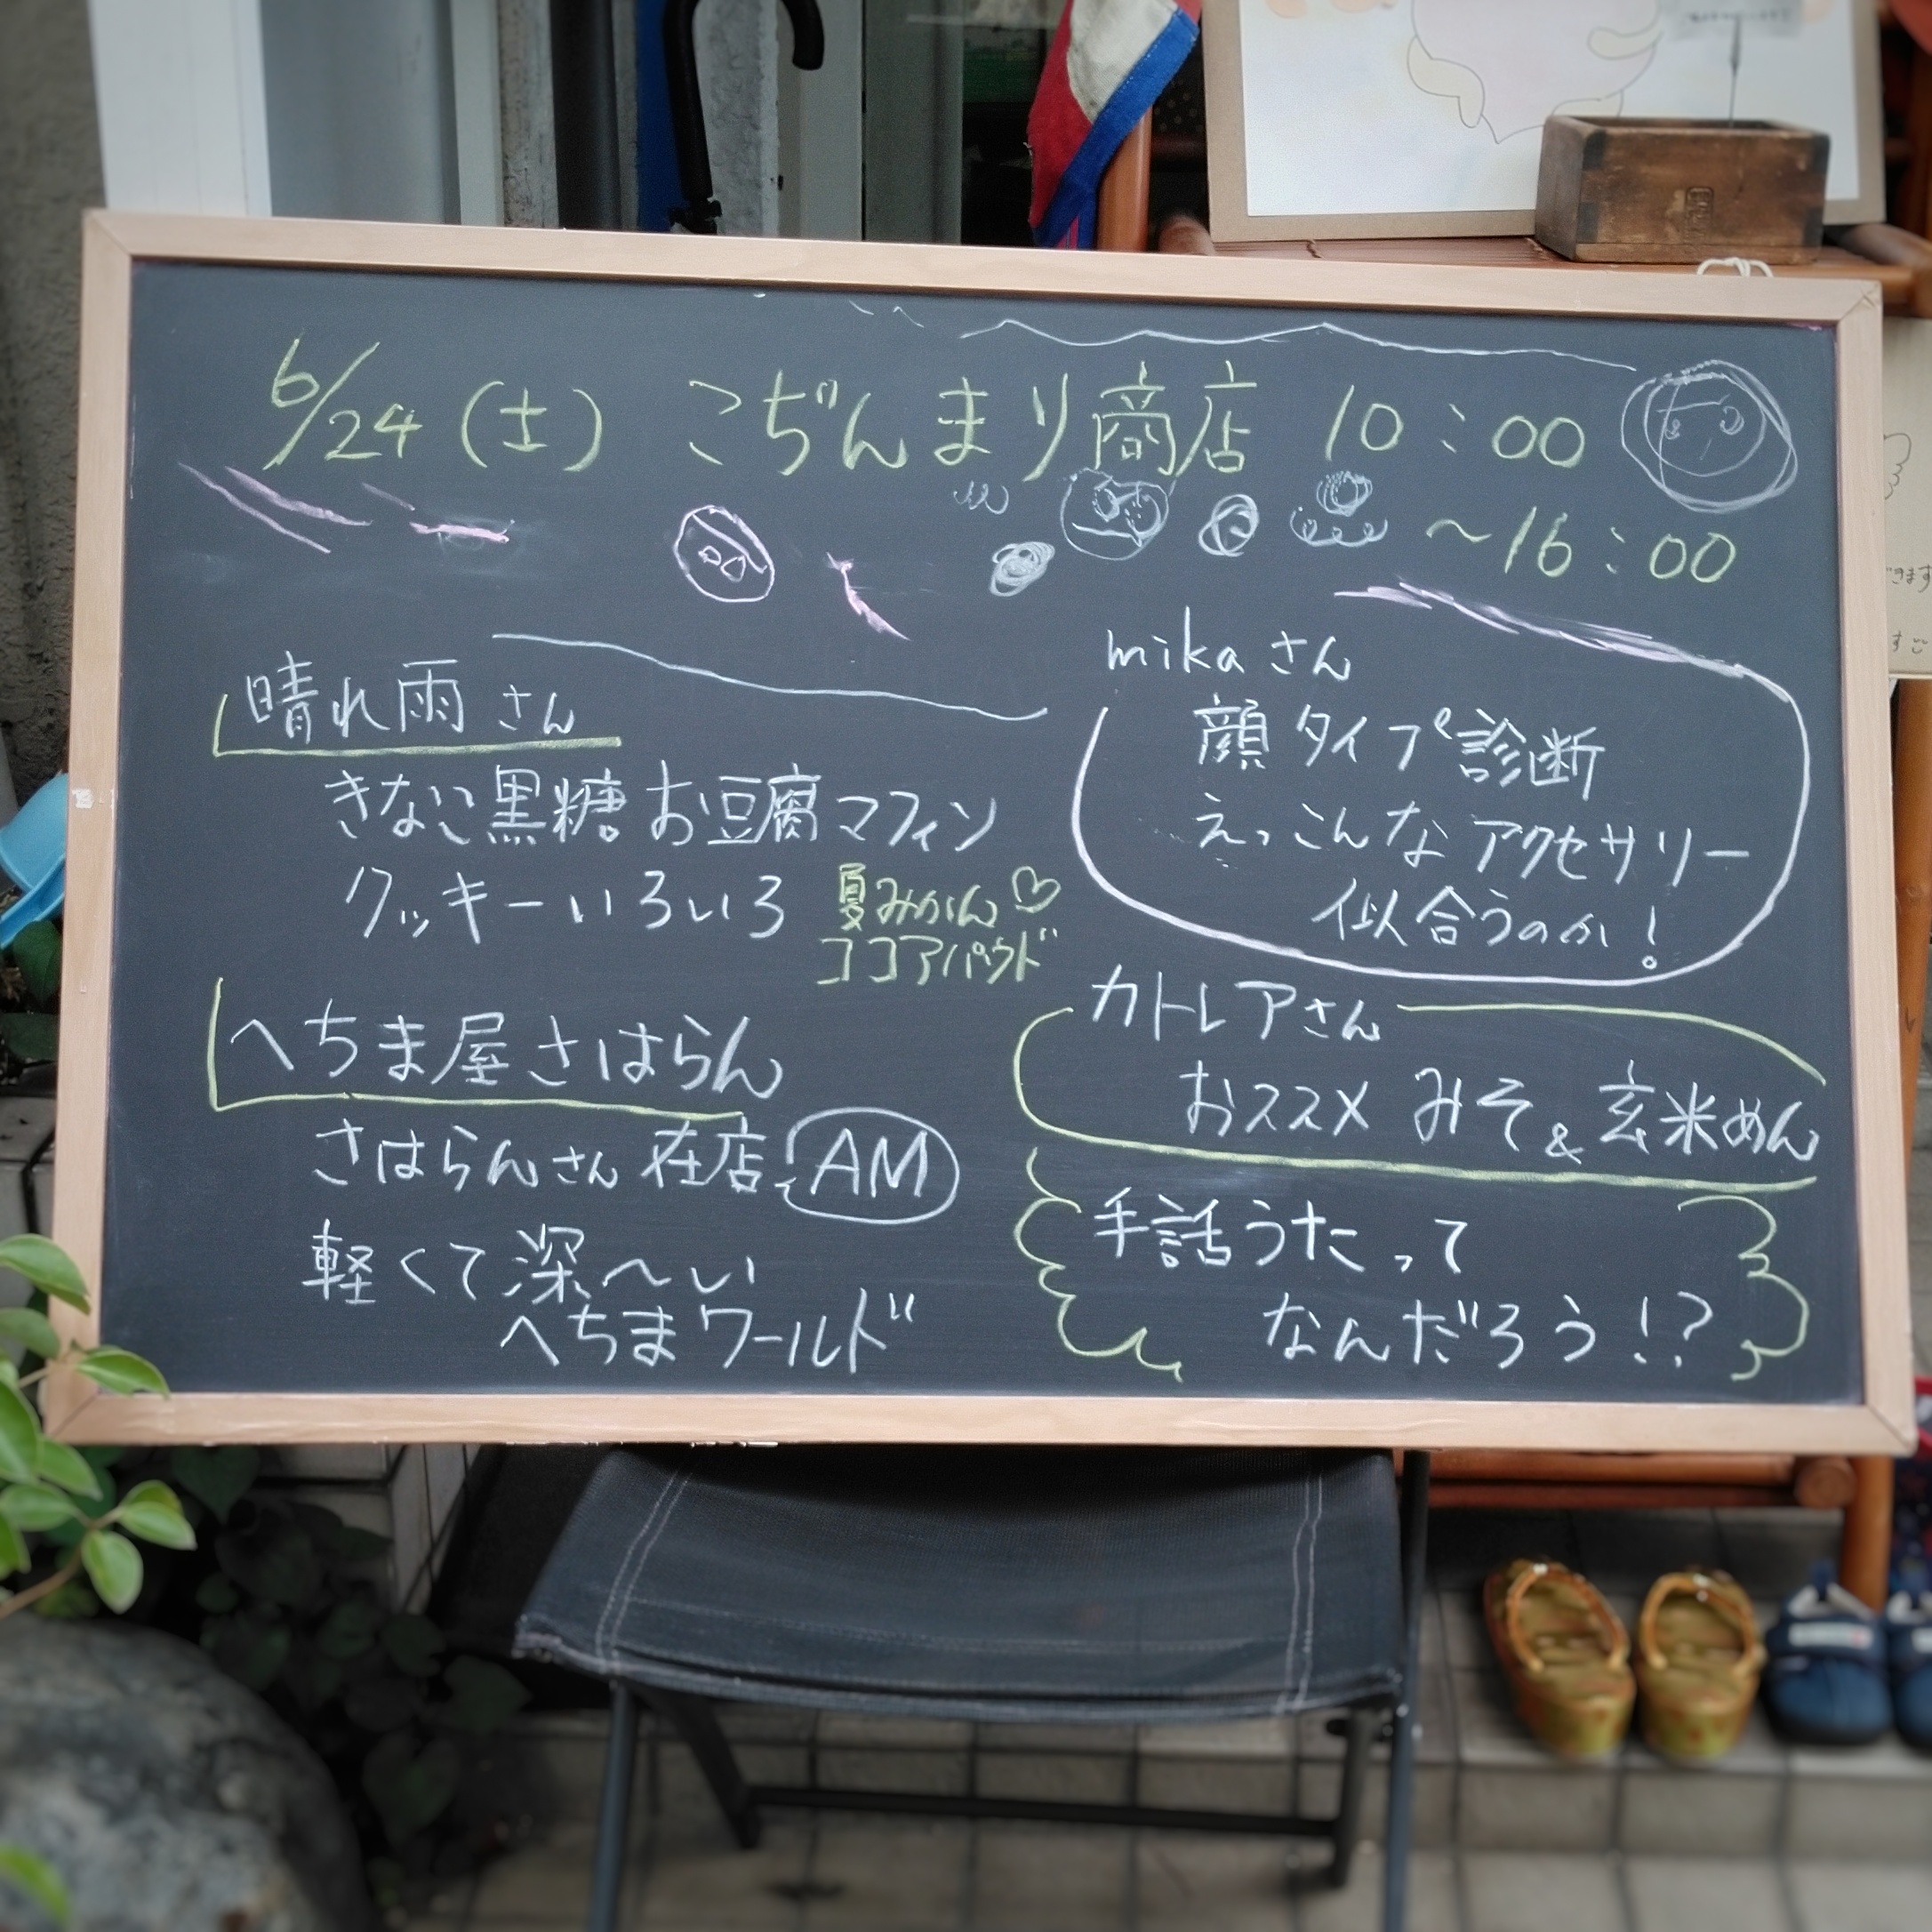 6/24（土） こぢんまり商店 10:00
～16:00
晴れ雨さん
きなこ黒糖お豆腐マフィン
クッキーいろいろ
夏みかん♡
ココアパウド
へちま屋さはらん
さはらんさん在店 AM
軽くて深〜い
へちまワールド
mikaさん
顔タイプ診断
えっこんなアクセサリー
似合うのか！
カトレアさん
おススメ みそ&玄米めん
手話うたって
なんだろう!?
きます
すご